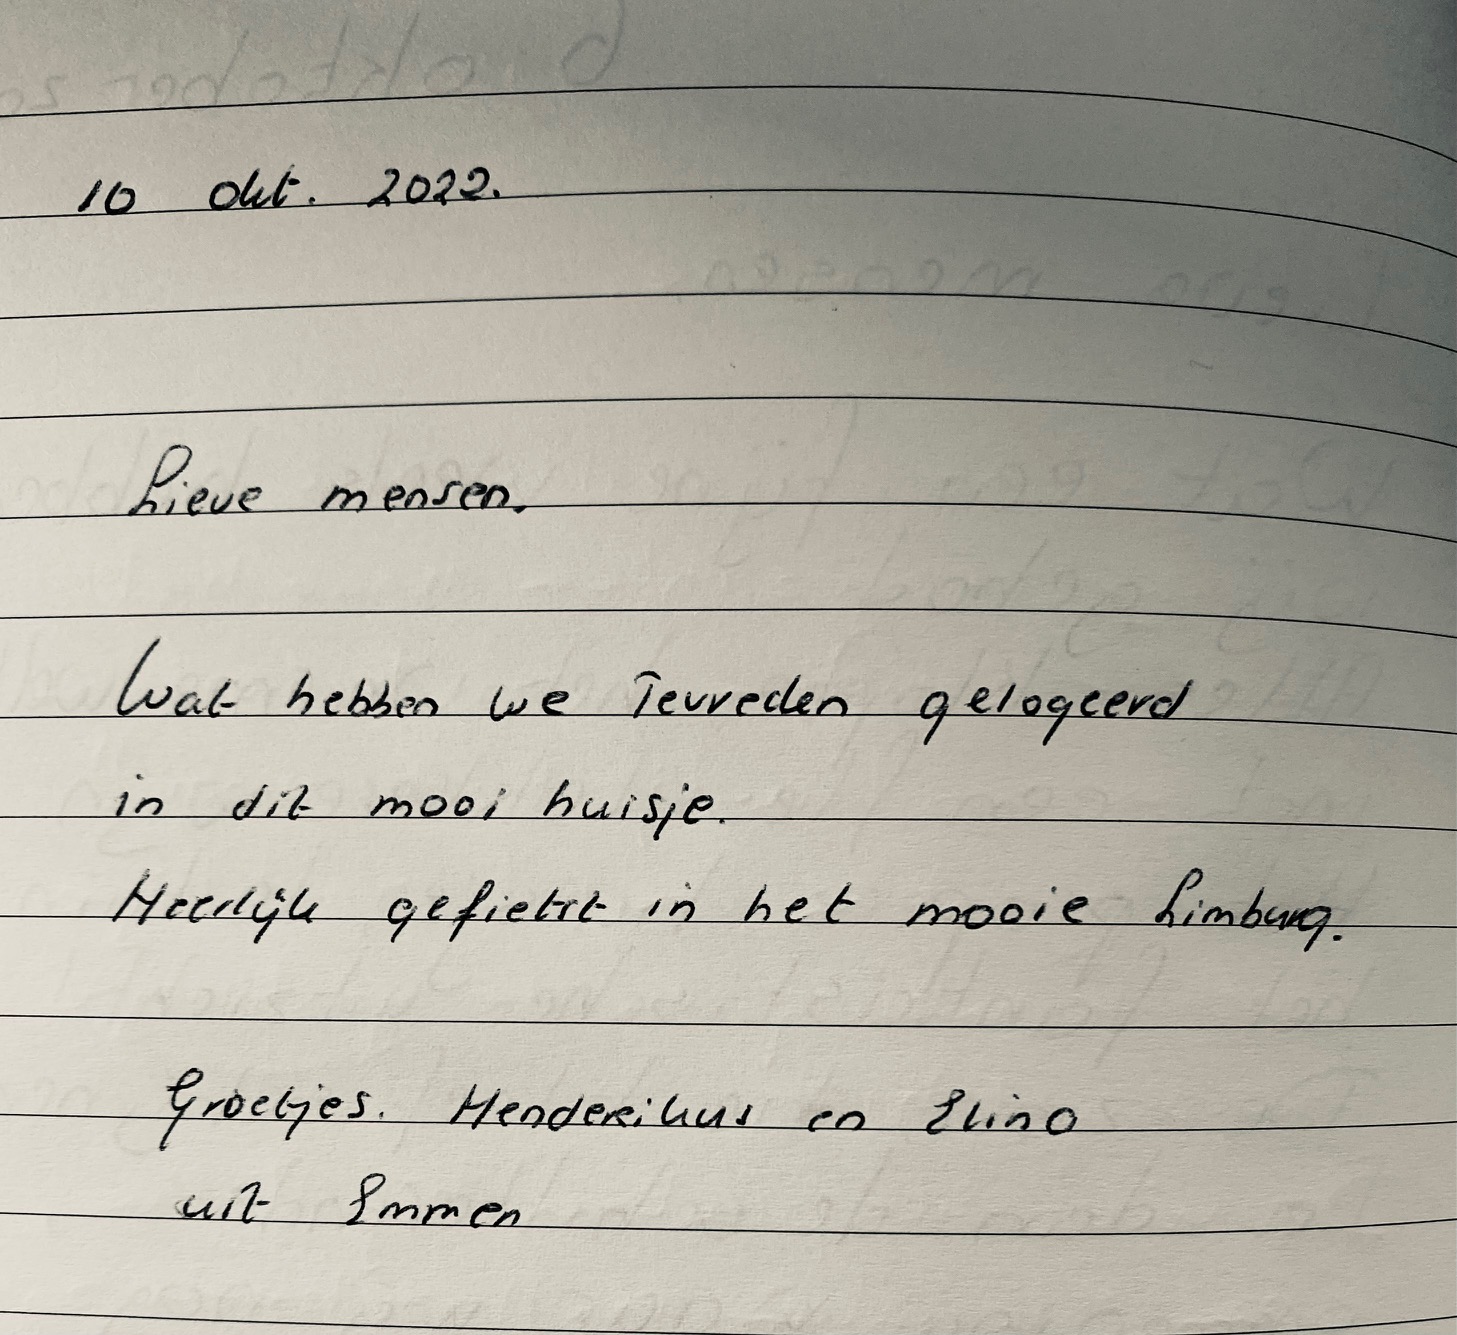 10 Okt. 2022.
Lieve mensen.
Wat hebben we Tevreden gelogeerd
in dit mooi huisje.
Heerlijk gefietst in het mooie Limburg.
Groetjes. Hendereikus en Elino
uit Emmen